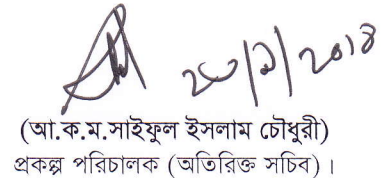 (আ.ক.ম.সাইফুল ইসলাম চৌধুরী)
প্রকল্প পরিচালক (অতিরিক্ত সচিব)।